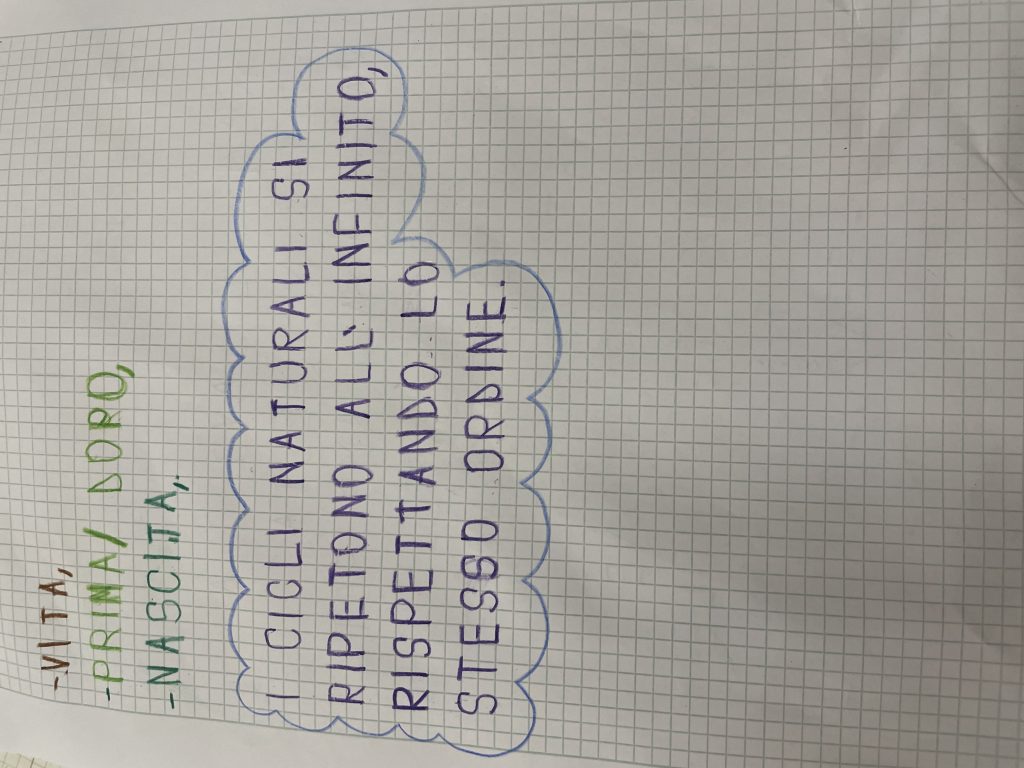 -VITA,
-PRINA/ DOPO,
-NASCITA,.
I CICLI NATURALI SI
RIPETONO ALL' INFINITO,
RISPETTANDO LO
STESSO ORDINE.